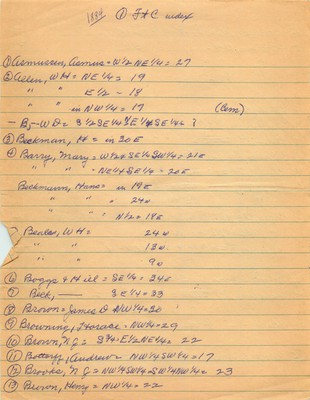 1884 ① F+C index
① Asmussen, Asmus = N½ NE¼ = 27
② Allen, WH = NE¼ = 19
" " E½ - 18
" " in NW¼ = 17 (Cem)
③ Beckman, H = in 30E
④ Barry, Mary = W½ SE¼ SW¼ = 21E
" " " - NE¼ SE¼ = 20E
Beckmann, Hans = in 19E
" " " 24W
" " " N/2 = 19E
Beales, WH = 24W
" " 13W
" " 9W
⑥ Boggs + Hill = SE¼ = 34E
⑦ Beck, —— SE¼ = 33
⑧ Brown = James D NW¼ = 20
⑨ Browning, Horace = NW¼ = 29
⑩ Brown, N.J. = E½ NE¼ = 22
⑪ Bottorff, Andrew = NW¼ SW¼ = 17
⑫ Brooke, N J = NW¼ SW¼ = SW¼ NW¼ = 23
⑬ Brown, Henry = NW¼ = 22